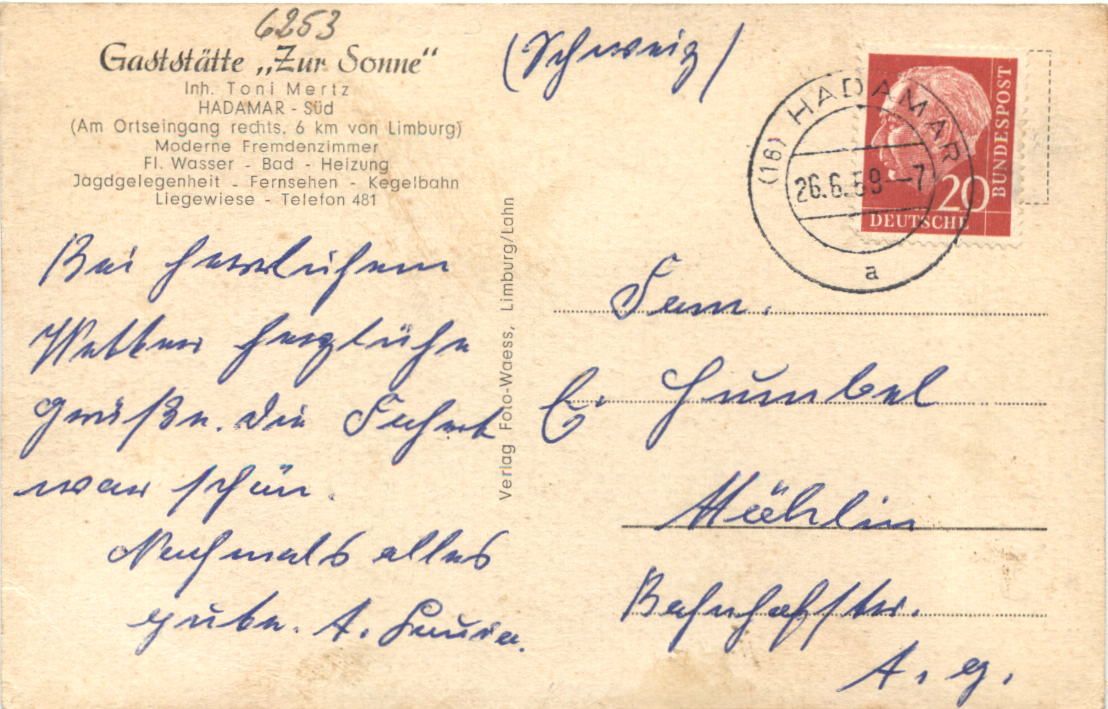 6253
Gaststätte „Zur Sonne“
Inh. Toni Mertz
HADAMAR - Süd
(Am Ortseingang rechts, 6 km von Limburg)
Moderne Fremdenzimmer
Fl. Wasser - Bad - Heizung
Jagdgelegenheit - Fernsehen - Kegelbahn
Liegewiese - Telefon 481
Bei herrlichem
Wetter herzliche
Grüße. Die Fahrt
war schön.
Nochmals alles
gute. A.
Verlag Foto-Waess, Limburg/Lahn
(Schweiz)
(16) HADAMAR
26.6.59--7
a
20
DEUTSCHE
BUNDESPOST
Fam.
E. Humbel
Möhlin
Bahnhofstr.
A. g.